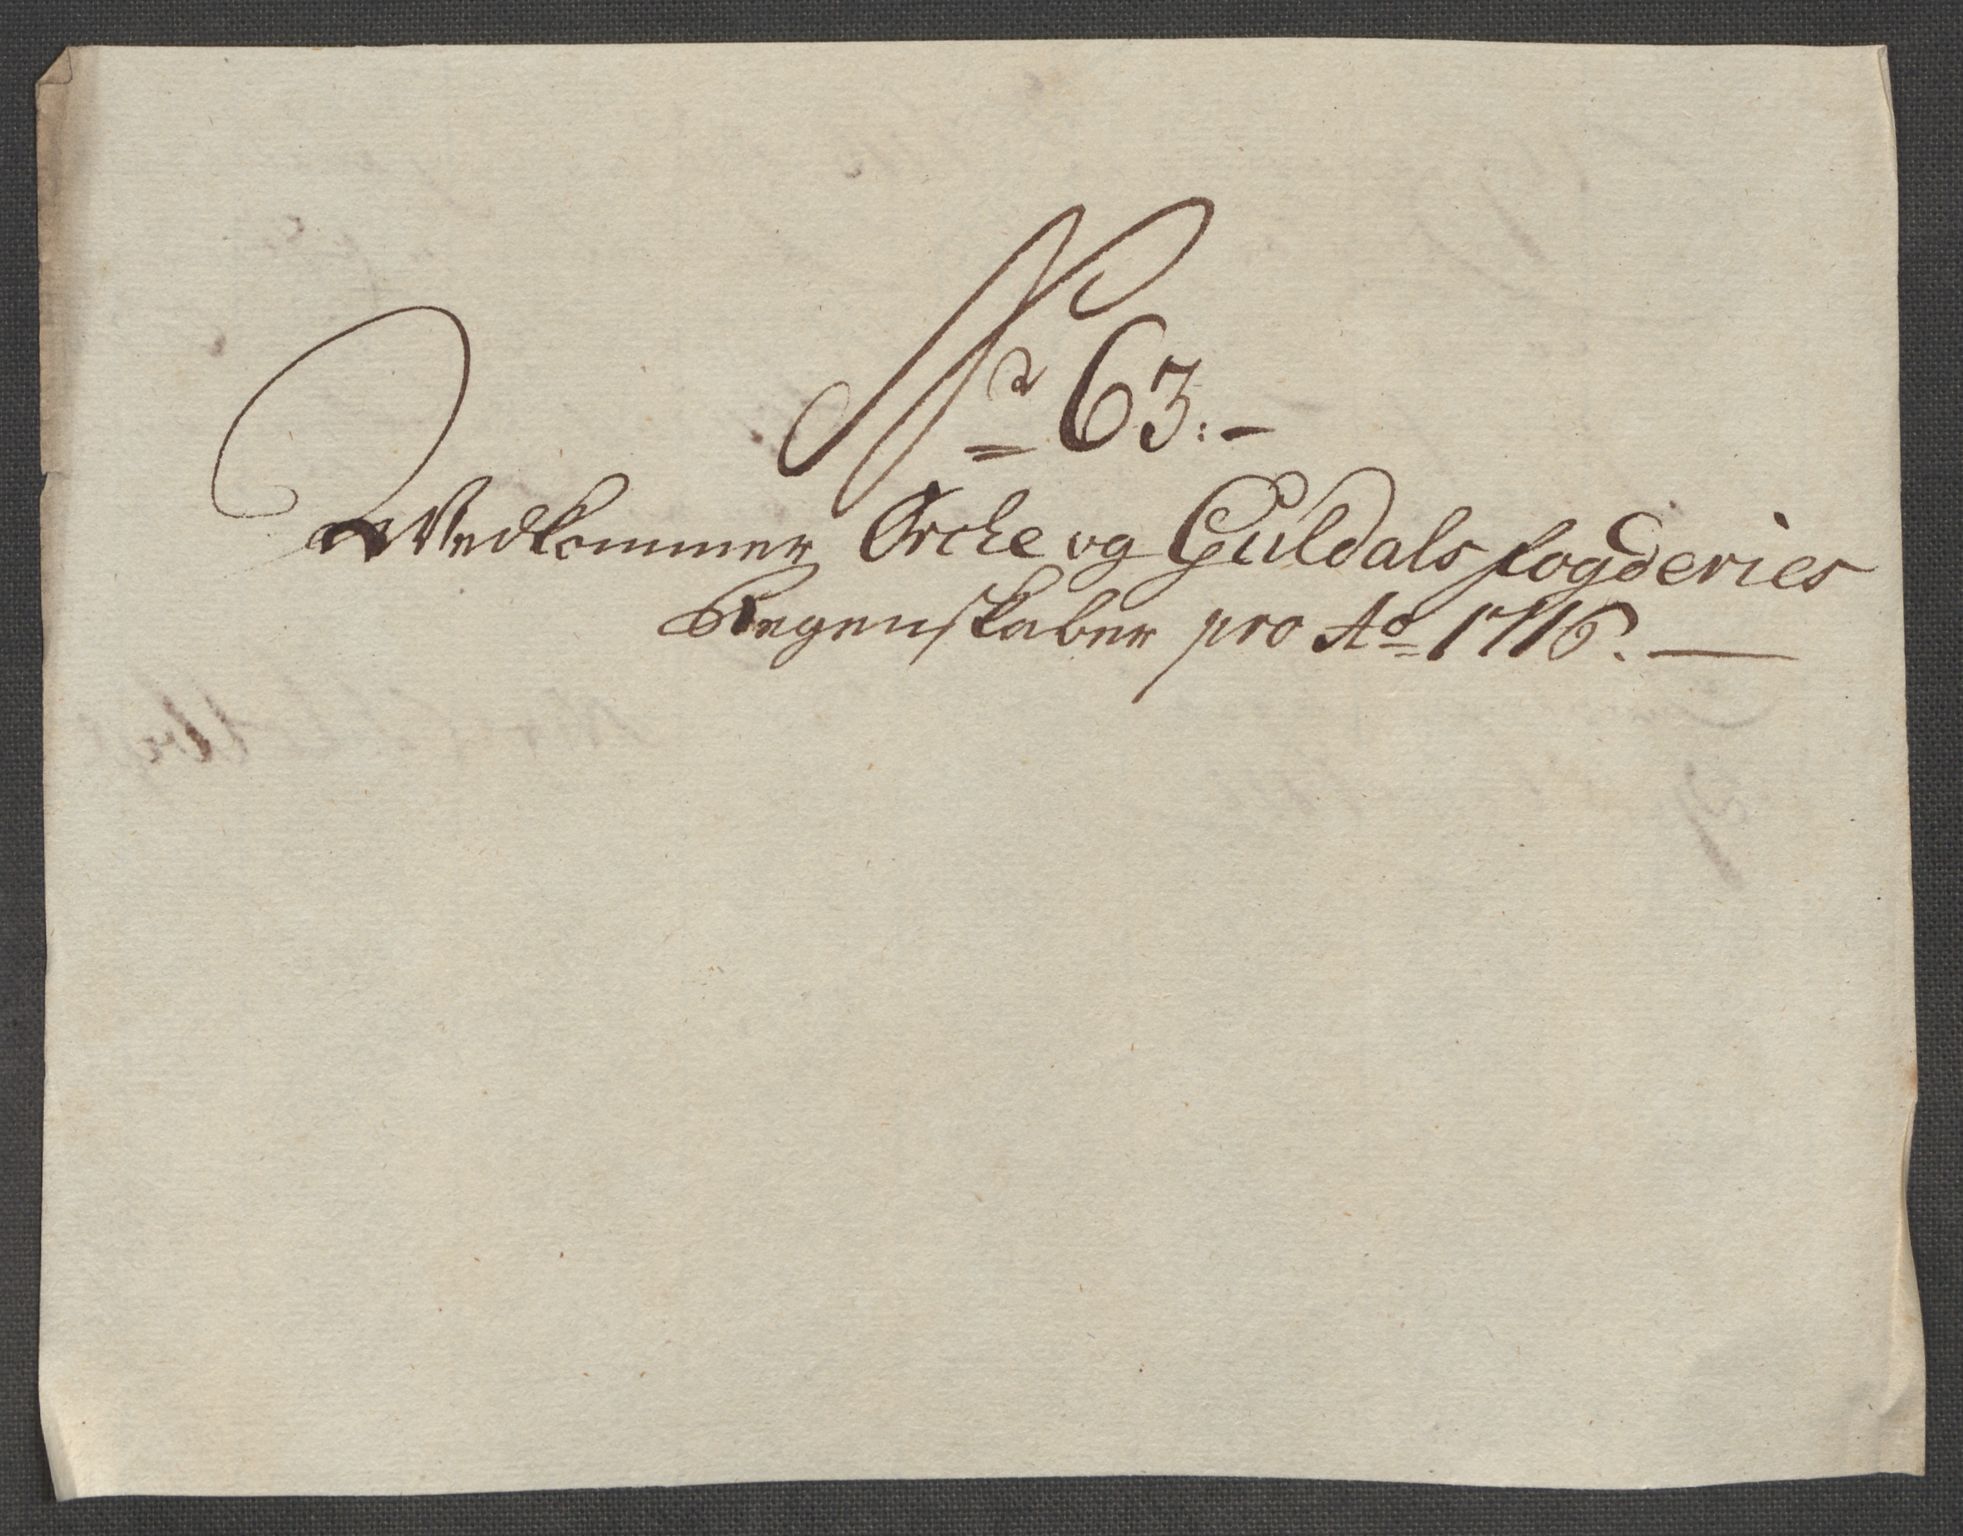 No 63.-
Vedkommer Orche og Guldals fogderies
Regenskaber pro Ao 1716.